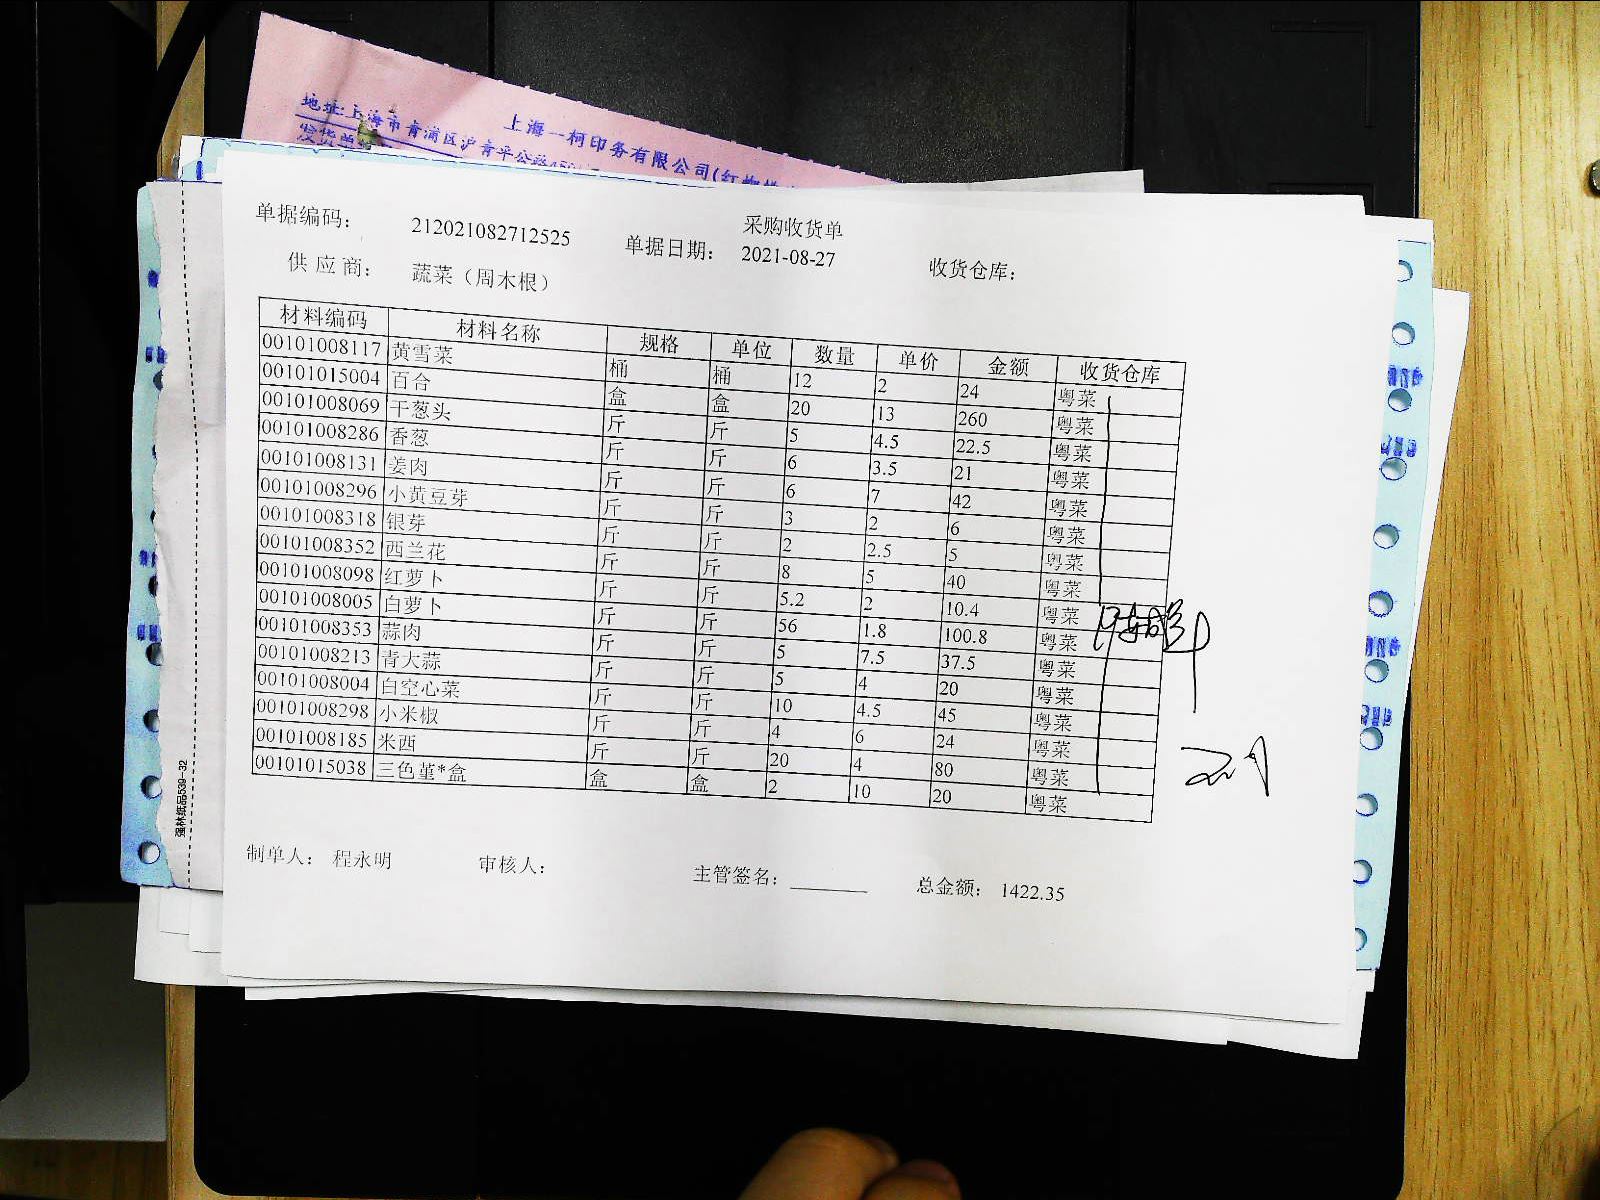 上海一柯印务有限公司(红
地址:上海市青浦区沪青平公路
采购收货单
单据编码： 212021082712525 单据日期： 2021-08-27 收货仓库：
供应商： 蔬菜（周木根）
材料编码 材料名称 规格 单位 数量 单价 金额 收货仓库
00101008117 黄雪菜 桶 桶 12 2 24 粤菜
00101015004 百合 盒 盒 20 13 260 粤菜
00101008069 干葱头 斤 斤 5 4.5 22.5 粤菜
00101008286 香葱 斤 斤 6 3.5 21 粤菜
00101008131 姜肉 斤 斤 6 7 42 粤菜
00101008296 小黄豆芽 斤 斤 3 2 6 粤菜
00101008318 银芽 斤 斤 2 2.5 5 粤菜
00101008352 西兰花 斤 斤 8 5 40 粤菜
00101008098 红萝卜 斤 斤 5.2 2 10.4 粤菜
00101008005 白萝卜 斤 斤 56 1.8 100.8 粤菜
00101008353 蒜肉 斤 斤 5 7.5 37.5 粤菜
00101008213 青大蒜 斤 斤 5 4 20 粤菜
00101008004 白空心菜 斤 斤 10 4.5 45 粤菜
00101008298 小米椒 斤 斤 4 6 24 粤菜
00101008185 米西 斤 斤 20 4 80 粤菜
00101015038 三色堇*盒 盒 盒 2 10 20 粤菜
制单人： 程永明 审核人： 主管签名： 总金额： 1422.35
强林纸品539-32